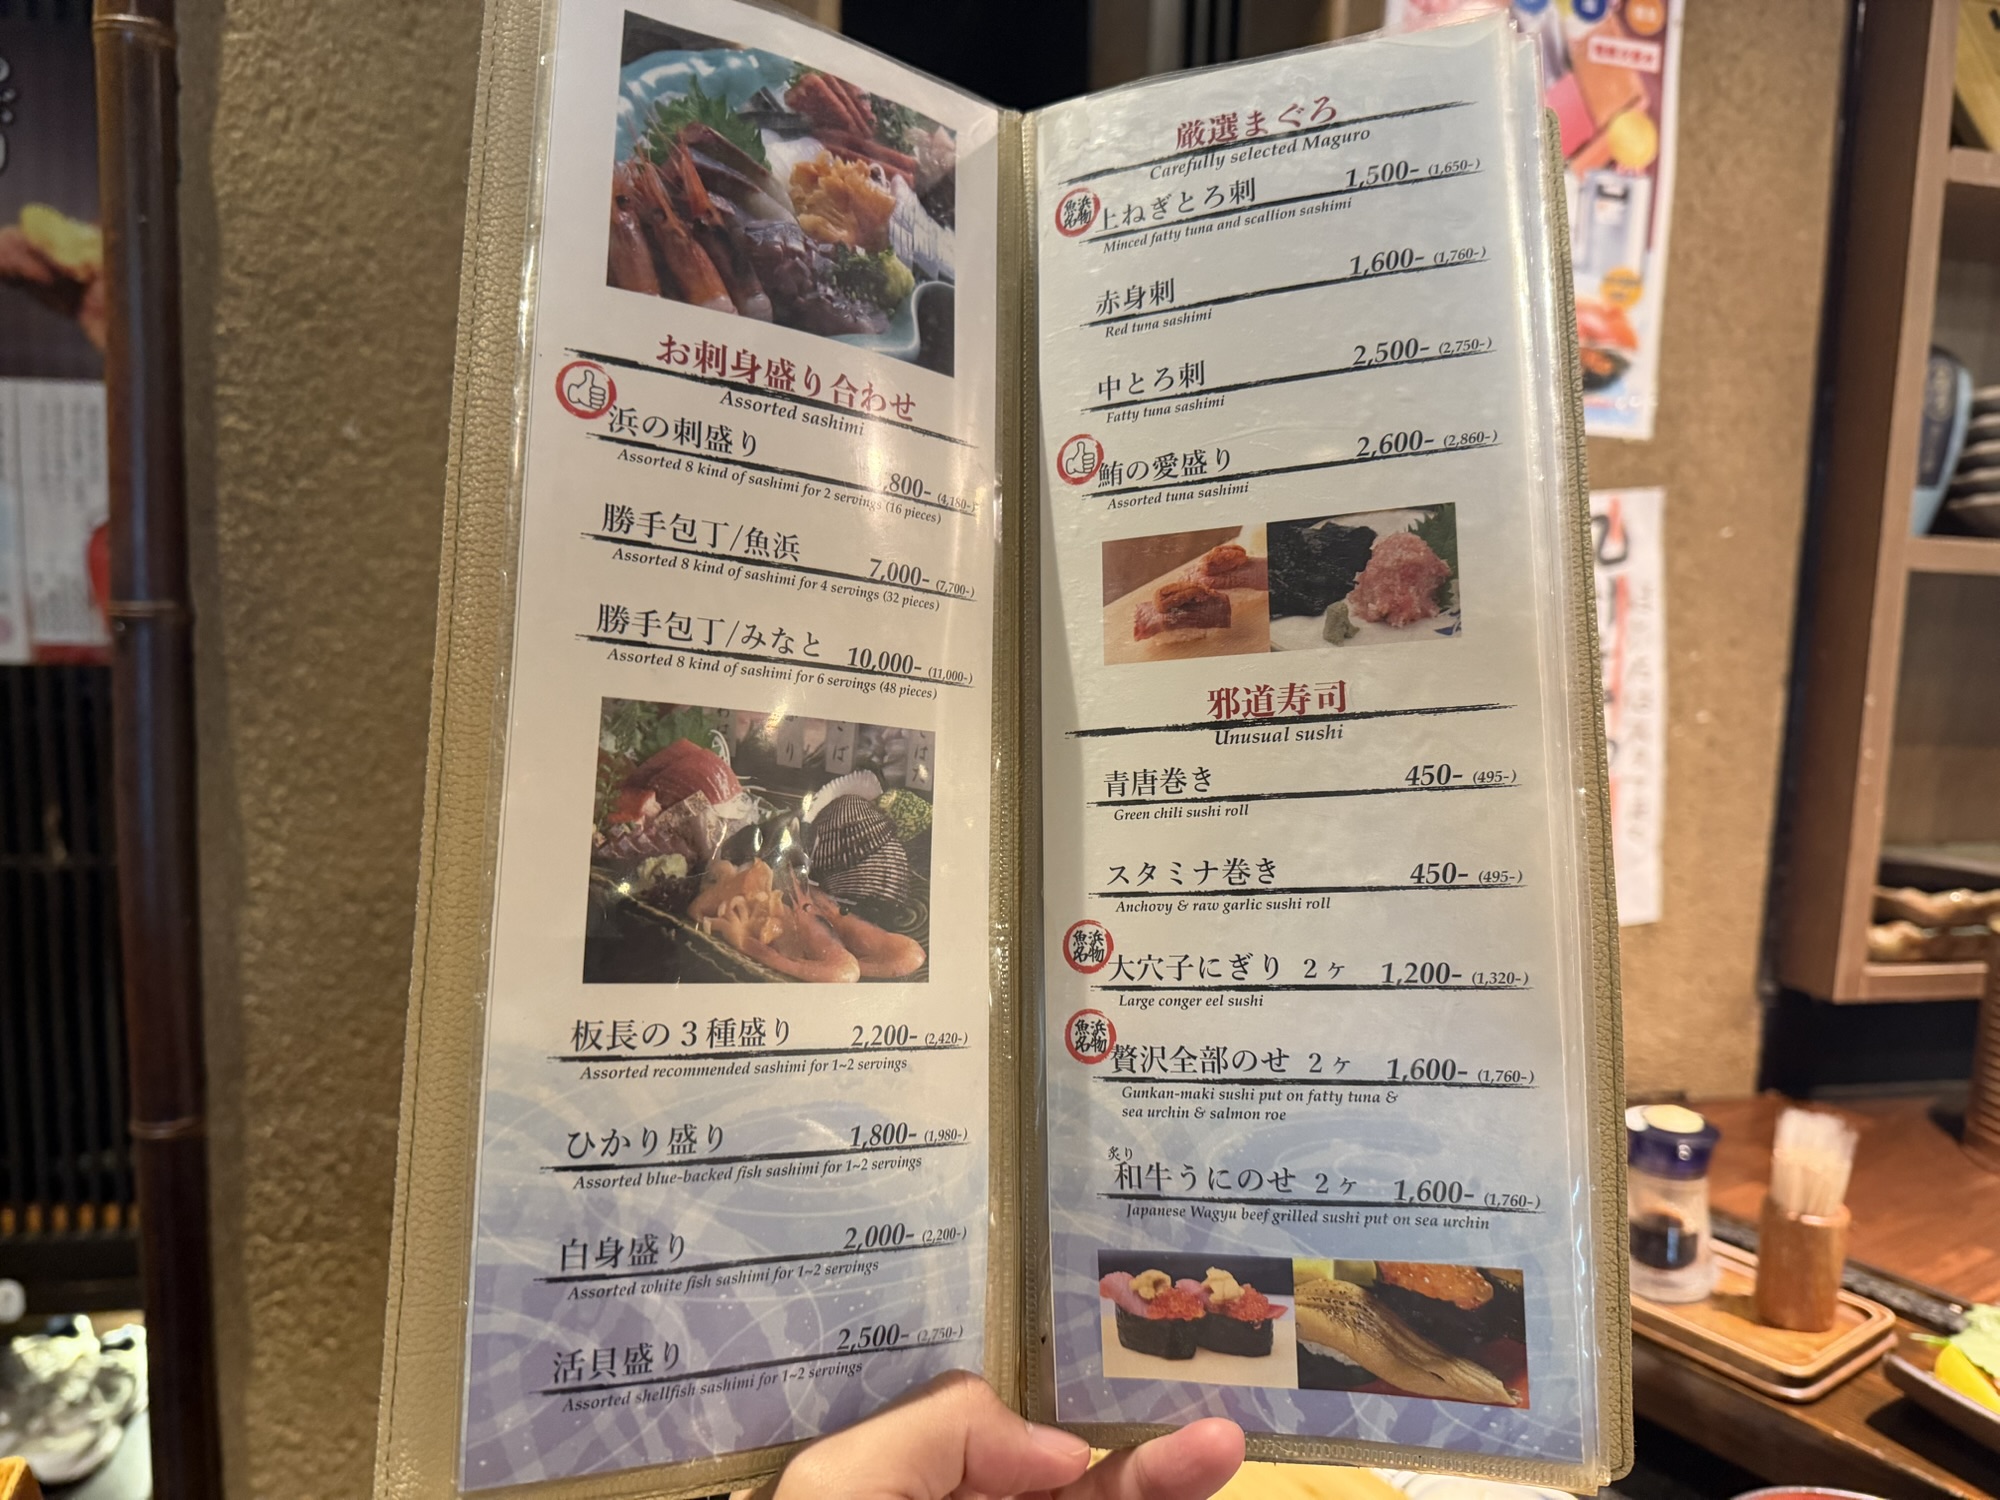 お刺身盛り合わせ
Assorted sashimi
浜の刺盛り
,800- (4,180-)
Assorted 8 kind of sashimi for 2 servings (16 pieces)
勝手包丁/魚浜
7,000- (7,700-)
Assorted 8 kind of sashimi for 4 servings (32 pieces)
勝手包丁/みなと
10,000- (11,000-)
Assorted 8 kind of sashimi for 6 servings (48 pieces)
板長の3種盛り
2,200- (2,420-)
Assorted recommended sashimi for 1~2 servings
ひかり盛り
1,800- (1,980-)
Assorted blue-backed fish sashimi for 1~2 servings
白身盛り
2,000- (2,200-)
Assorted white fish sashimi for 1~2 servings
活貝盛り
2,500- (2,750-)
Assorted shellfish sashimi for 1~2 servings
厳選まぐろ
Carefully selected Maguro
魚浜名物
上ねぎとろ刺
1,500- (1,650-)
Minced fatty tuna and scallion sashimi
赤身刺
1,600- (1,760-)
Red tuna sashimi
中とろ刺
2,500- (2,750-)
Fatty tuna sashimi
鮪の愛盛り
2,600- (2,860-)
Assorted tuna sashimi
邪道寿司
Unusual sushi
青唐巻き
450- (495-)
Green chili sushi roll
スタミナ巻き
450- (495-)
Anchovy & raw garlic sushi roll
魚浜名物
大穴子にぎり 2ヶ
1,200- (1,320-)
Large conger eel sushi
魚浜名物
贅沢全部のせ 2ヶ
1,600- (1,760-)
Gunkan-maki sushi put on fatty tuna &
sea urchin & salmon roe
炙り
和牛うにのせ 2ヶ
1,600- (1,760-)
Japanese Wagyu beef grilled sushi put on sea urchin